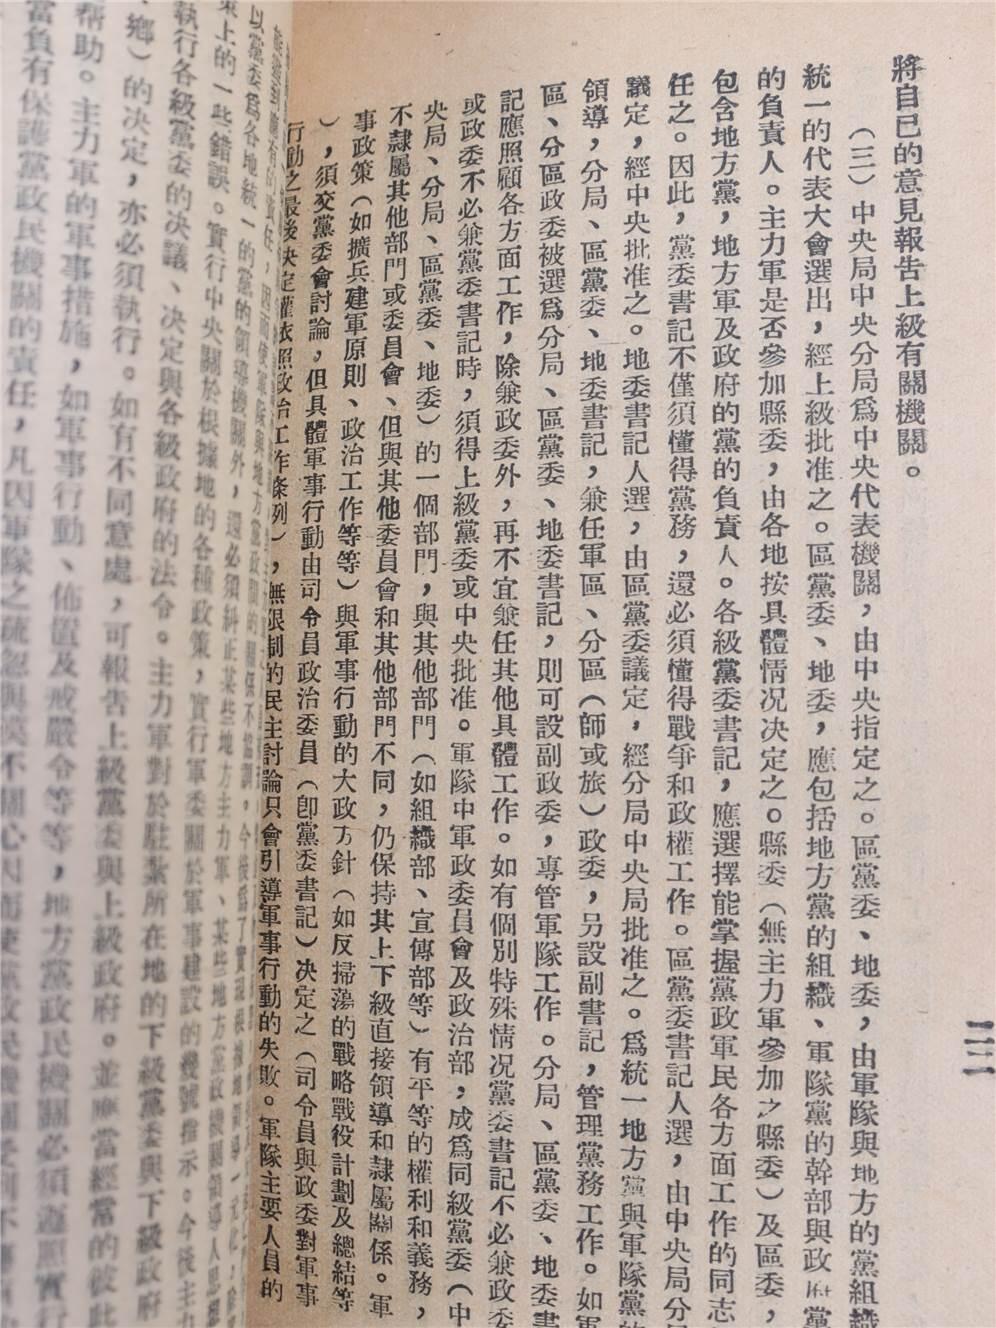 將自己的意見報告上級有關機關。
（三）中央局中央分局爲中央代表機關，由中央指定之。區黨委、地委，由軍隊與地方的黨組織
統一的代表大會選出，經上級批准之。區黨委、地委，應包括地方黨的組織、軍隊黨的幹部與政府黨
的負責人。主力軍是否參加縣委，由各地按具體情况决定之。縣委（無主力軍參加之縣委）及區委，
包含地方黨，地方軍及政府的黨的負責人。各級黨委書記，應選擇能掌握黨政軍民各方面工作的同志
任之。因此，黨委書記不僅須懂得黨務，還必須懂得戰爭和政權工作。區黨委書記人選，由中央局分
議定，經中央批准之。地委書記人選，由區黨委議定，經分局中央局批准之。爲統一地方黨與軍隊黨的
領導，分局、區黨委、地委書記，兼任軍區、分區（師或旅）政委，另設副書記，管理黨務工作。如軍
區、分區政委被選爲分局、區黨委、地委書記，則可設副政委，專管軍隊工作。分局、區黨委、地委書
記應照顧各方面工作，除兼政委外，再不宜兼任其他具體工作。如有個別特殊情况黨委書記不必兼政委
或政委不必兼黨委書記時，須得上級黨委或中央批准。軍隊中軍政委員會及政治部，成爲同級黨委（中
央局、分局、區黨委、地委）的一個部門，與其他部門（如組織部、宣傳部等）有平等的權利和義務，
不隷屬其他部門或委員會、但與其他委員會和其他部門不同，仍保持其上下級直接領導和隷屬關係。軍
事政策（如擴兵建軍原則、政治工作等等）與軍事行動的大政方針（如反掃蕩的戰略戰役計劃及總結等
），須交黨委會討論，但具體軍事行動由司令員政治委員（卽黨委書記）决定之（司令員與政委對軍事
行動之最後决定權依照政治工作條列），無限制的民主討論只會引導軍事行動的失敗。軍隊主要人員的
二二
以黨委爲各地統一的黨的領導機關外，還必須糾正某些地方主力軍、某些地方黨政機關領導人思想
策上的一些錯誤。實行中央關於根據地的各種政策，實行軍委關於軍事建設的幾號指示。今後主力
執行各級黨委的决議、决定與各級政府的法令。主力軍對於駐紮所在地的下級黨委與下級政府
鄉）的决定，亦必須執行。如有不同意處，可報告上級黨委與上級政府。並應當經常的彼此
幫助。主力軍的軍事措施，如軍事行動、佈置及戒嚴令等等，地方黨政民機關必須遵照實行
當負有保護黨政民機關的責任，凡因軍隊之疏忽與漠不關心